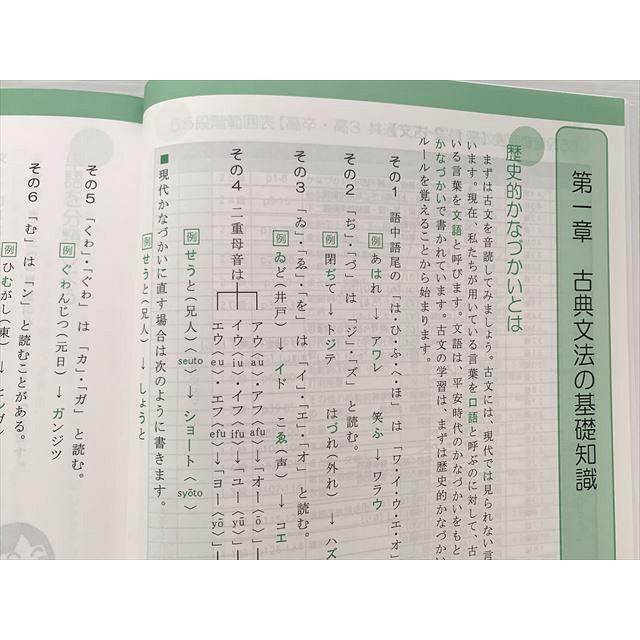 第一章 古典文法の基礎知識
歴史的かなづかいとは
まずは古文を音読してみましょう。古文には、現代では見られない言
います。現在、私たちが用いている言葉を口語と呼ぶのに対して、古
いる言葉を文語と呼びます。文語は、平安時代のかなづかいをもと
かなづかいで書かれています。古文の学習は、まずは歴史的かなづかい
ルールを覚えることから始まります。
その1 語中語尾の「は・ひ・ふ・へ・ほ」は「ワ・イ・ウ・エ・オ」
例 あはれ→アワレ 笑ふ→ワラウ
その2 「ぢ」・「づ」は「ジ」・「ズ」と読む。
例 閉ぢて→トジテ はづれ(外れ)→ハズ
その3 「ゐ」・「ゑ」・「を」は「イ」・「エ」・「オ」と読む。
例 ゐど(井戸)→イド こゑ(声)→コエ
その4 二重母音は
アウ〈au〉・アフ〈afu〉→「オー〈ō〉」
イウ〈iu〉・イフ〈ifu〉→「ユー〈yū〉」
エウ〈eu〉・エフ〈efu〉→「ヨー〈yō〉」
例 せうと(兄人)〈seuto〉→ショート〈syōto〉
■現代かなづかいに直す場合は次のように書きます。
例 せうと(兄人)→しょうと
その5 「くわ」・「ぐわ」は「カ」・「ガ」と読む。
例 ぐわんじつ(元日)→ガンジツ
その6 「む」は「ン」と読むことがある。
例 ひむがし(東)→